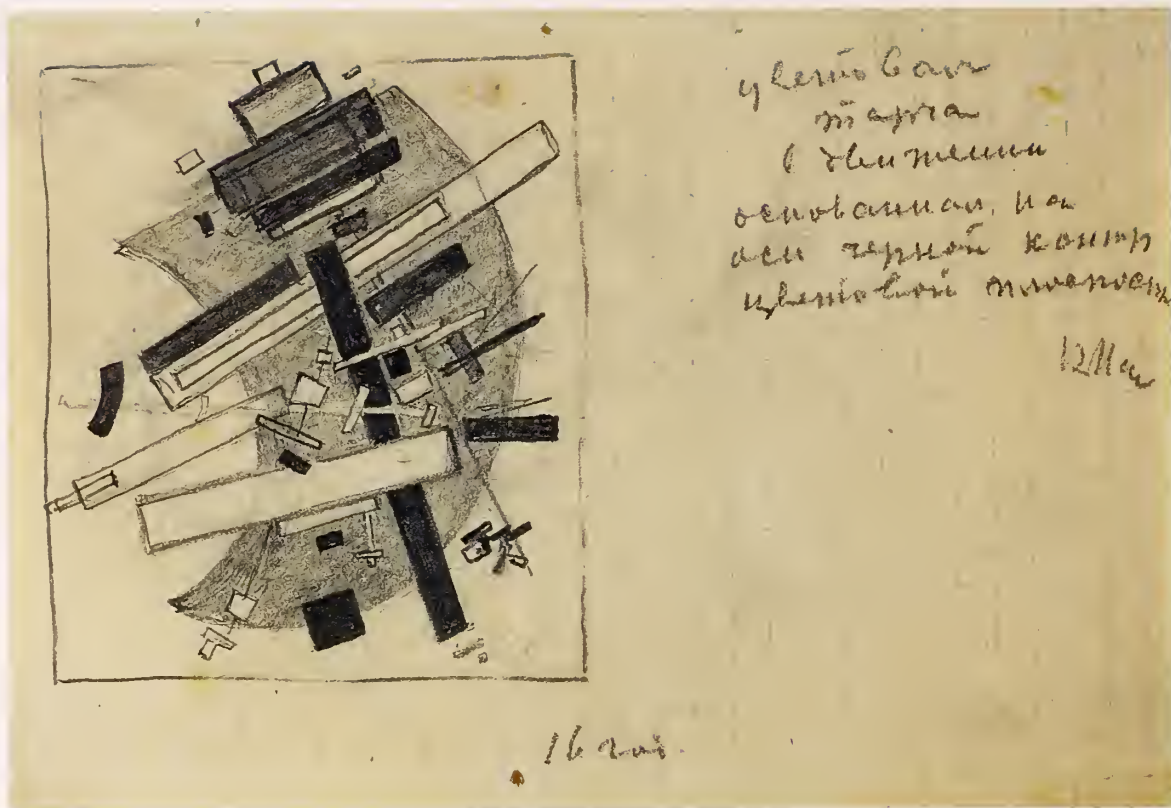 цветовая
в движении
основанная на
оси черной контр
цветовой плоскости
КМал
16 год.